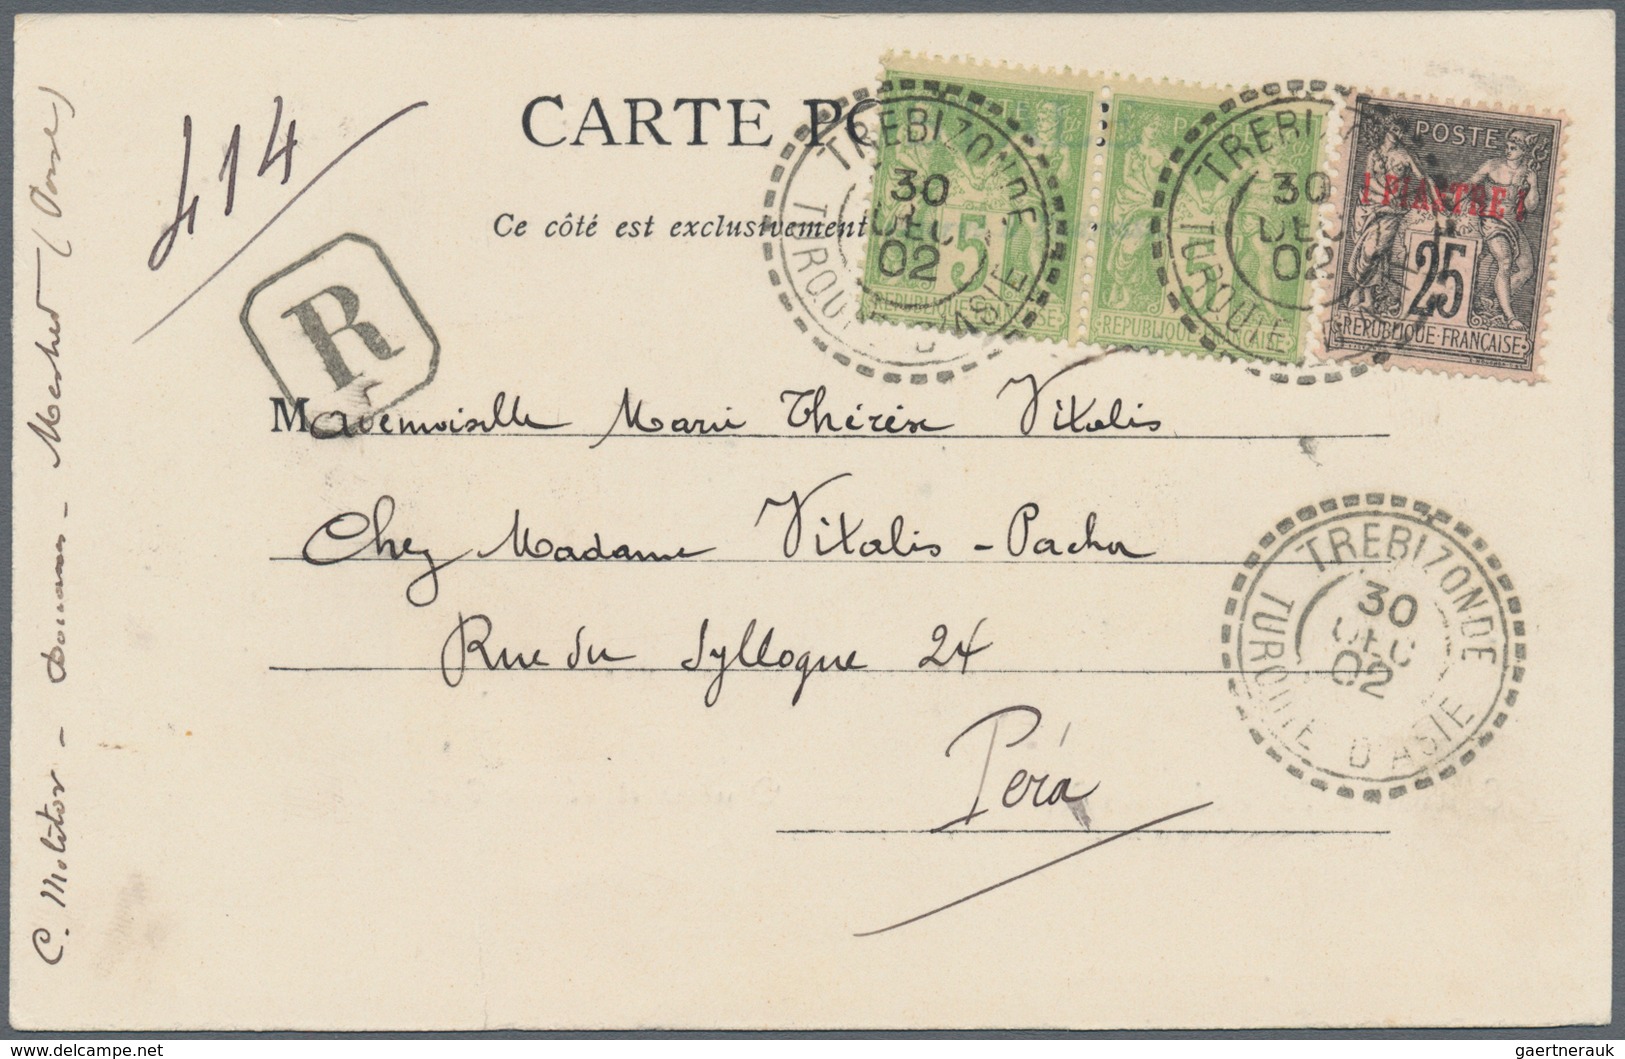 414
CARTE PO
Ce côté est exclusivement
R
POSTE
1 PIASTRE 1
25
REPUBLIQUE FRANÇAISE
5
REPUBLIQUE FRANÇAISE
5
REPUBLIQUE
TREBIZONDE
30
DEC
02
TURQUIE D'ASIE
TREBIZONDE
30
DEC
02
TURQUIE D'ASIE
Mademoiselle Marie Thérèse Vitalis
Chez Madame Vitalis-Pacha
Rue du Syllogue 24
Péra
TREBIZONDE
30
DEC
02
TURQUIE D'ASIE
C. Molitor - Douanes - Mechhed (Perse)
delcampe.net
gaertnerauk